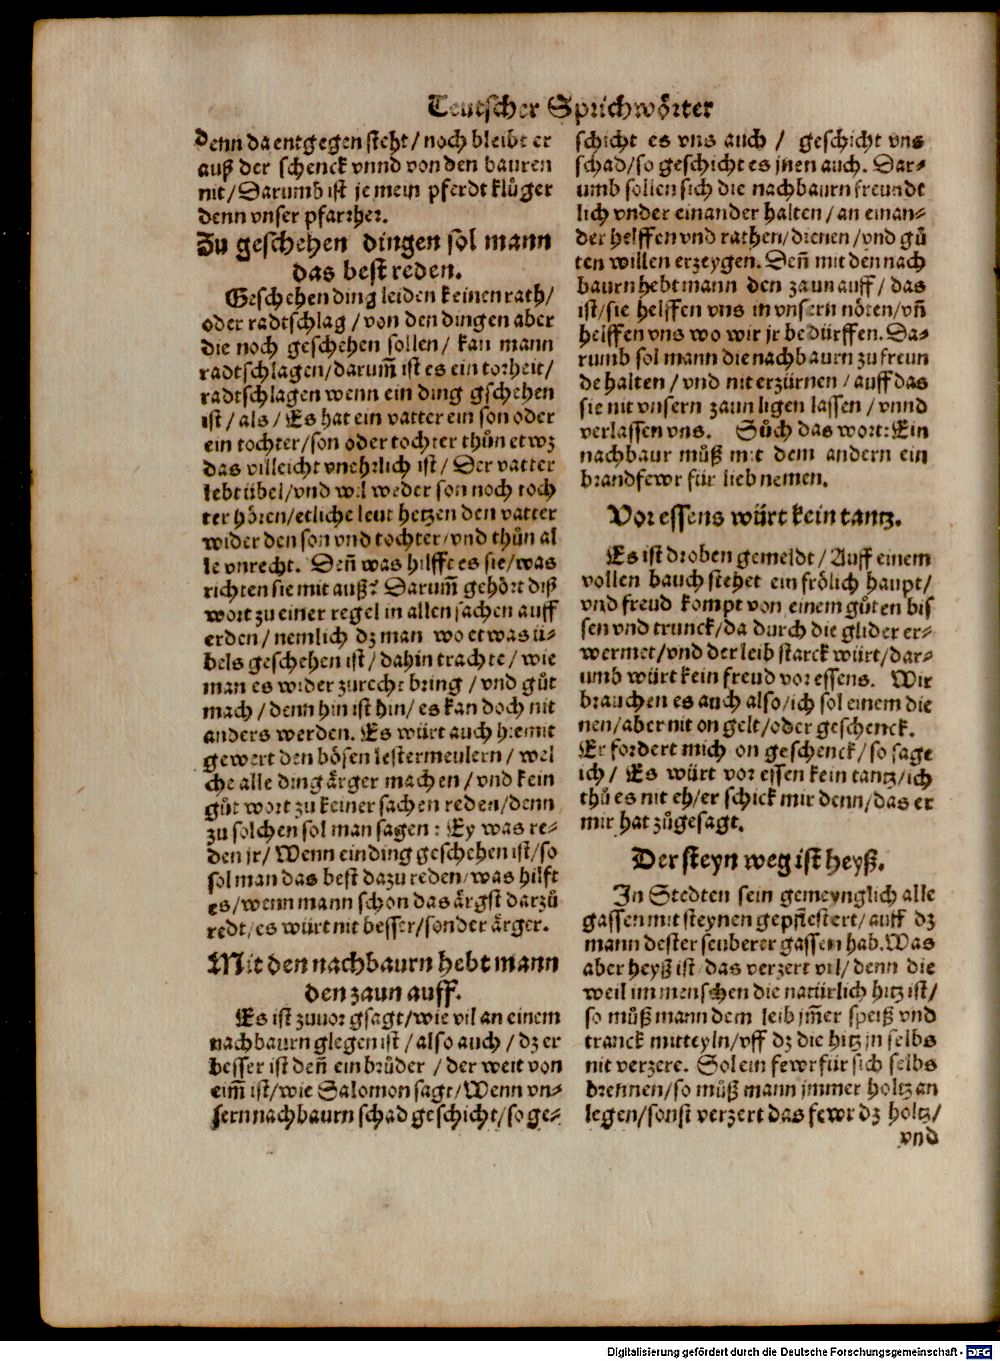 Teutscher Sprichwörter
denn da entgegen steht/ noch bleibt er
auß der schenck vnnd von den bauren
nit/ Darumb ist je mein pferdt klůger
denn vnser pfarrher.
Zu geschehen dingen sol mann
das best reden.
Geschehen ding leiden keinen rath/
oder radtschlag / von den dingen aber
die noch geschehen sollen/ kan mann
radtschlagen/ darum̄ ist es ein torheit/
radtschlagen wenn ein ding gschehen
ist / als / Es hat ein vatter ein son oder
ein tochter/ son oder tochter thůn etwz
das villeicht vnehrlich ist / Der vatter
lebt übel/ vnd wil weder son noch toch
ter hören/ etliche leut hetzen den vatter
wider den son vnd tochter/ vnd thůn al
le vnrecht. Deñ was hilfft es sie/ was
richten sie mit auß? Darum̄ gehört diß
wort zu einer regel in allen sachen auff
erden/ nemlich dz man wo etwas ü-
bels geschehen ist/ dahin trachte/ wie
man es wider zurecht bring / vnd gůt
mach / denn hin ist hin/ es kan doch nit
anders werden. Es würt auch hiemit
gewert den bösen lestermeulern / wel
che alle ding ärger machen / vnd kein
gůt wort zu keiner sachen reden/ denn
zu solchen sol man sagen : Ey was re-
den jr/ Wenn ein ding geschehen ist/ so
sol man das best dazu reden/ was hilft
es/ wenn mann schon das ärgst darzů
redt/ es würt nit besser/ sonder ärger.
Mit den nachbaurn hebt mann
den zaun auff.
Es ist zuuor gsagt/ wie vil an einem
nachbaurn glegen ist / also auch / dz er
besser ist deñ ein brůder / der weit von
eim̄ ist/ wie Salomon sagt/ Wenn vn-
sern nachbaurn schad geschicht/ so ge-
schicht es vns auch / geschicht vns
schad/ so geschicht es jnen auch. Dar-
umb sollen sich die nachbaurn freundt
lich vnder einander halten / an einan-
der helffen vnd rathen/ dienen / vnd gů
ten willen erzeygen. Deñ mit den nach
baurn hebt mann den zaun auff / das
ist/ sie helffen vns in vnsern nöten/ vñ
helffen vns wo wir jr bedürffen. Da-
rumb sol mann die nachbaurn zu freun
de halten / vnd nit erzürnen / auff das
sie nit vnsern zaun ligen lassen / vnnd
verlassen vns. Sůch das wort: Ein
nachbaur můß mit dem andern ein
brandfewr für lieb nemen.
Vor essens würt kein tantz.
Es ist droben gemeldt / Auff einem
vollen bauch stehet ein frölich haupt/
vnd freud kompt von einem gůten bis
sen vnd trunck/ da durch die glider er-
wermet/ vnd der leib starck würt/ dar-
umb würt kein freud vor essens. Wir
brauchen es auch also/ ich sol einem die
nen/ aber nit on gelt/ oder geschenck.
Er fordert mich on geschenck/ so sage
ich / Es würt vor essen kein tantz/ ich
thů es nit eh/ er schick mir denn/ das er
mir hat zůgesagt.
Der steyn weg ist heyß.
In Stedten sein gemeynglich alle
gassen mit steynen gepflestert/ auff dz
mann dester seuberer gassen hab. Was
aber heyß ist das verzert vil/ denn die
weil im menschen die natürlich hitz ist/
so můß mann dem leib jm̄er speiß vnd
tranck mitteyln/ vff dz die hitz jn selbs
nit verzere. Sol ein fewr für sich selbs
brennen/ so můß mann jmmer holtz an
legen/ sonst verzert das fewr dz holtz/
vnd
Digitalisierung gefördert durch die Deutsche Forschungsgemeinschaft - DFG